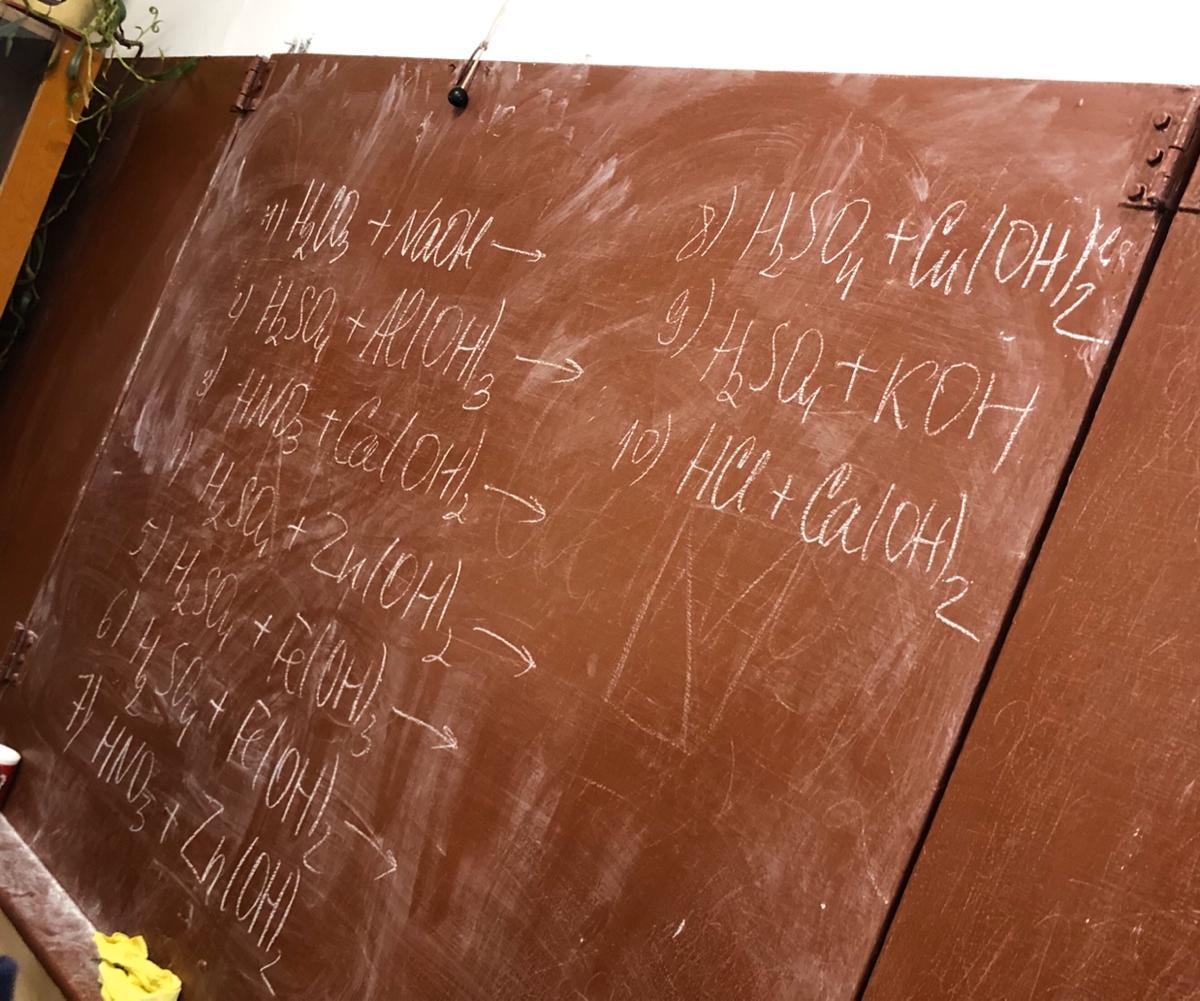 1) H₂CO₃ + NaOH →
2) H₂SO₄ + Al(OH)₃ →
3) HNO₃ + Ca(OH)₂ →
4) H₂SO₄ + Zn(OH)₂ →
5) H₂SO₄ + Fe(OH)₃ →
6) H₂SO₄ + Fe(OH)₂ →
7) HNO₃ + Zn(OH)₂
8) H₂SO₄ + Cu(OH)₂
9) H₂SO₄ + KOH
10) HCl + Ca(OH)₂